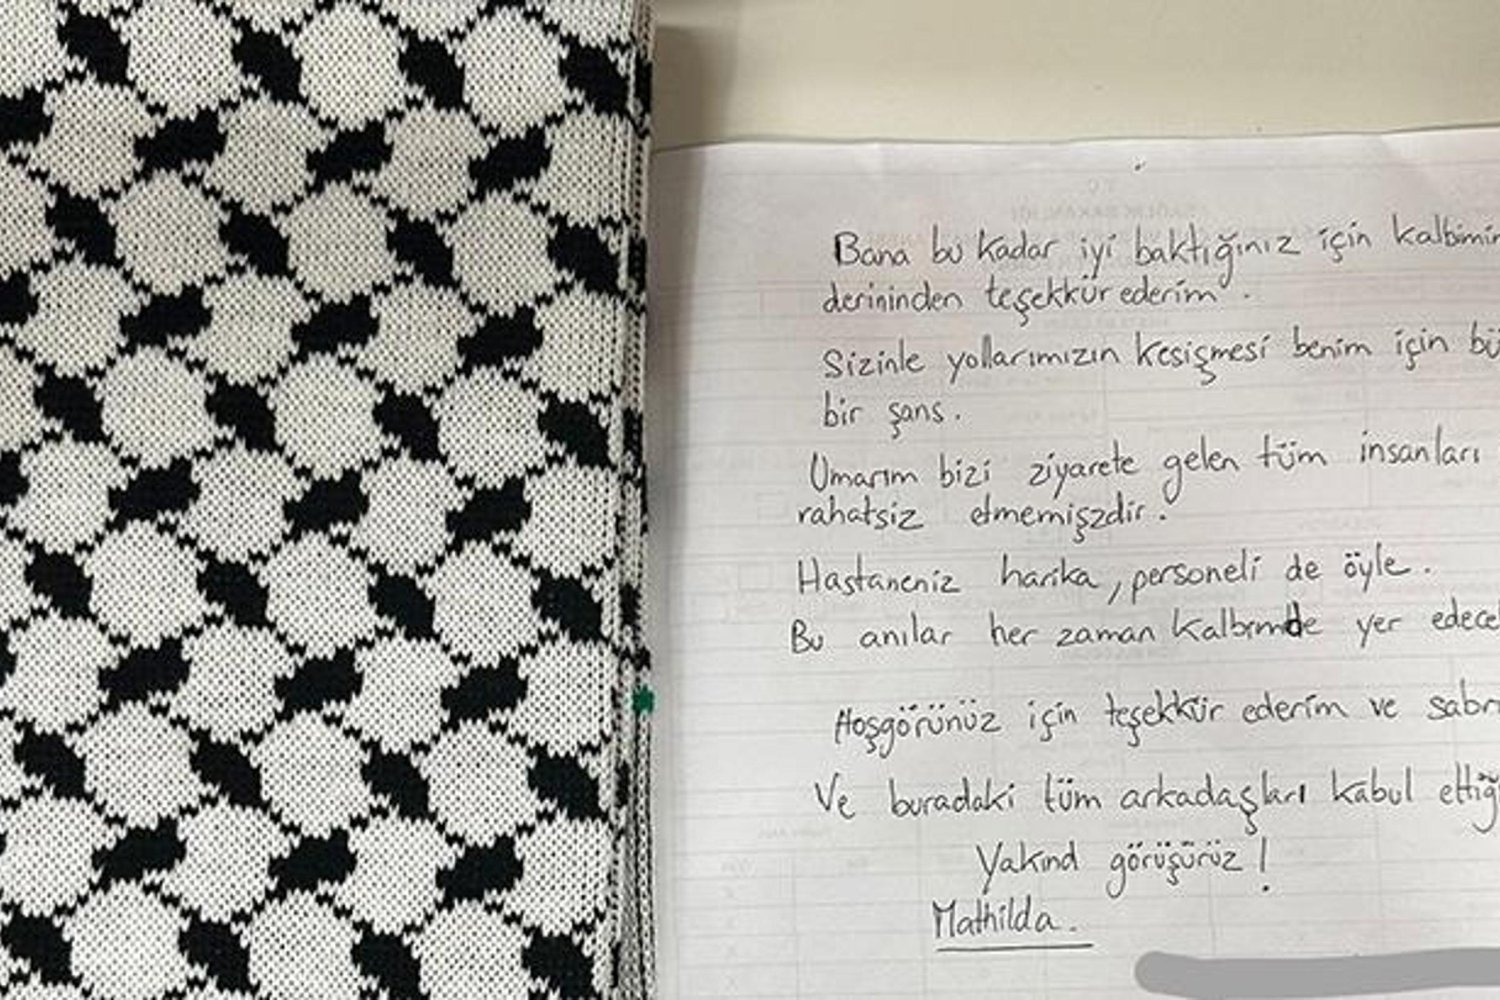 Bana bu kadar iyi baktığınız için kalbimin
derininden teşekkür ederim.
Sizinle yollarımızın kesişmesi benim için bü
bir şans.
Umarım bizi ziyarete gelen tüm insanları
rahatsiz etmemişzdir.
Hastaneniz harika, personeli de öyle.
Bu anılar her zaman kalbımde yer edece
Hoşgörünüz için teşekkür ederim ve sabr
Ve buradaki tüm arkadaşları kabul ettiğ
Yakınd görüşürüz!
Mathilda.